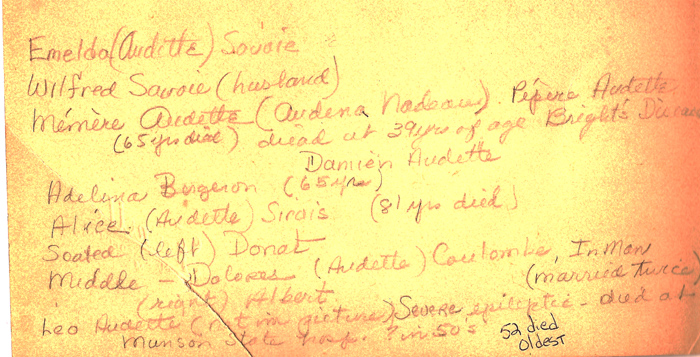 Emelda (Audette) Savoie
Wilfred Savoie (husband)
Mémère Audette (Audena Nadeau) Pépère Audette
(65 yrs died) died at 39 yrs of age Bright's Disease
Damien Audette
Adelina Bergeron (65 yrs)
Alice (Audette) Sirois (81 yrs died)
Seated (left) Donat
Middle - Dolores (Audette) Coulombe, In Man
(married twice)
(right) Albert
Leo Audette (not in picture) Severe epileptic - died at
Munson State hosp. ? in 50s
52 died
OLDEST